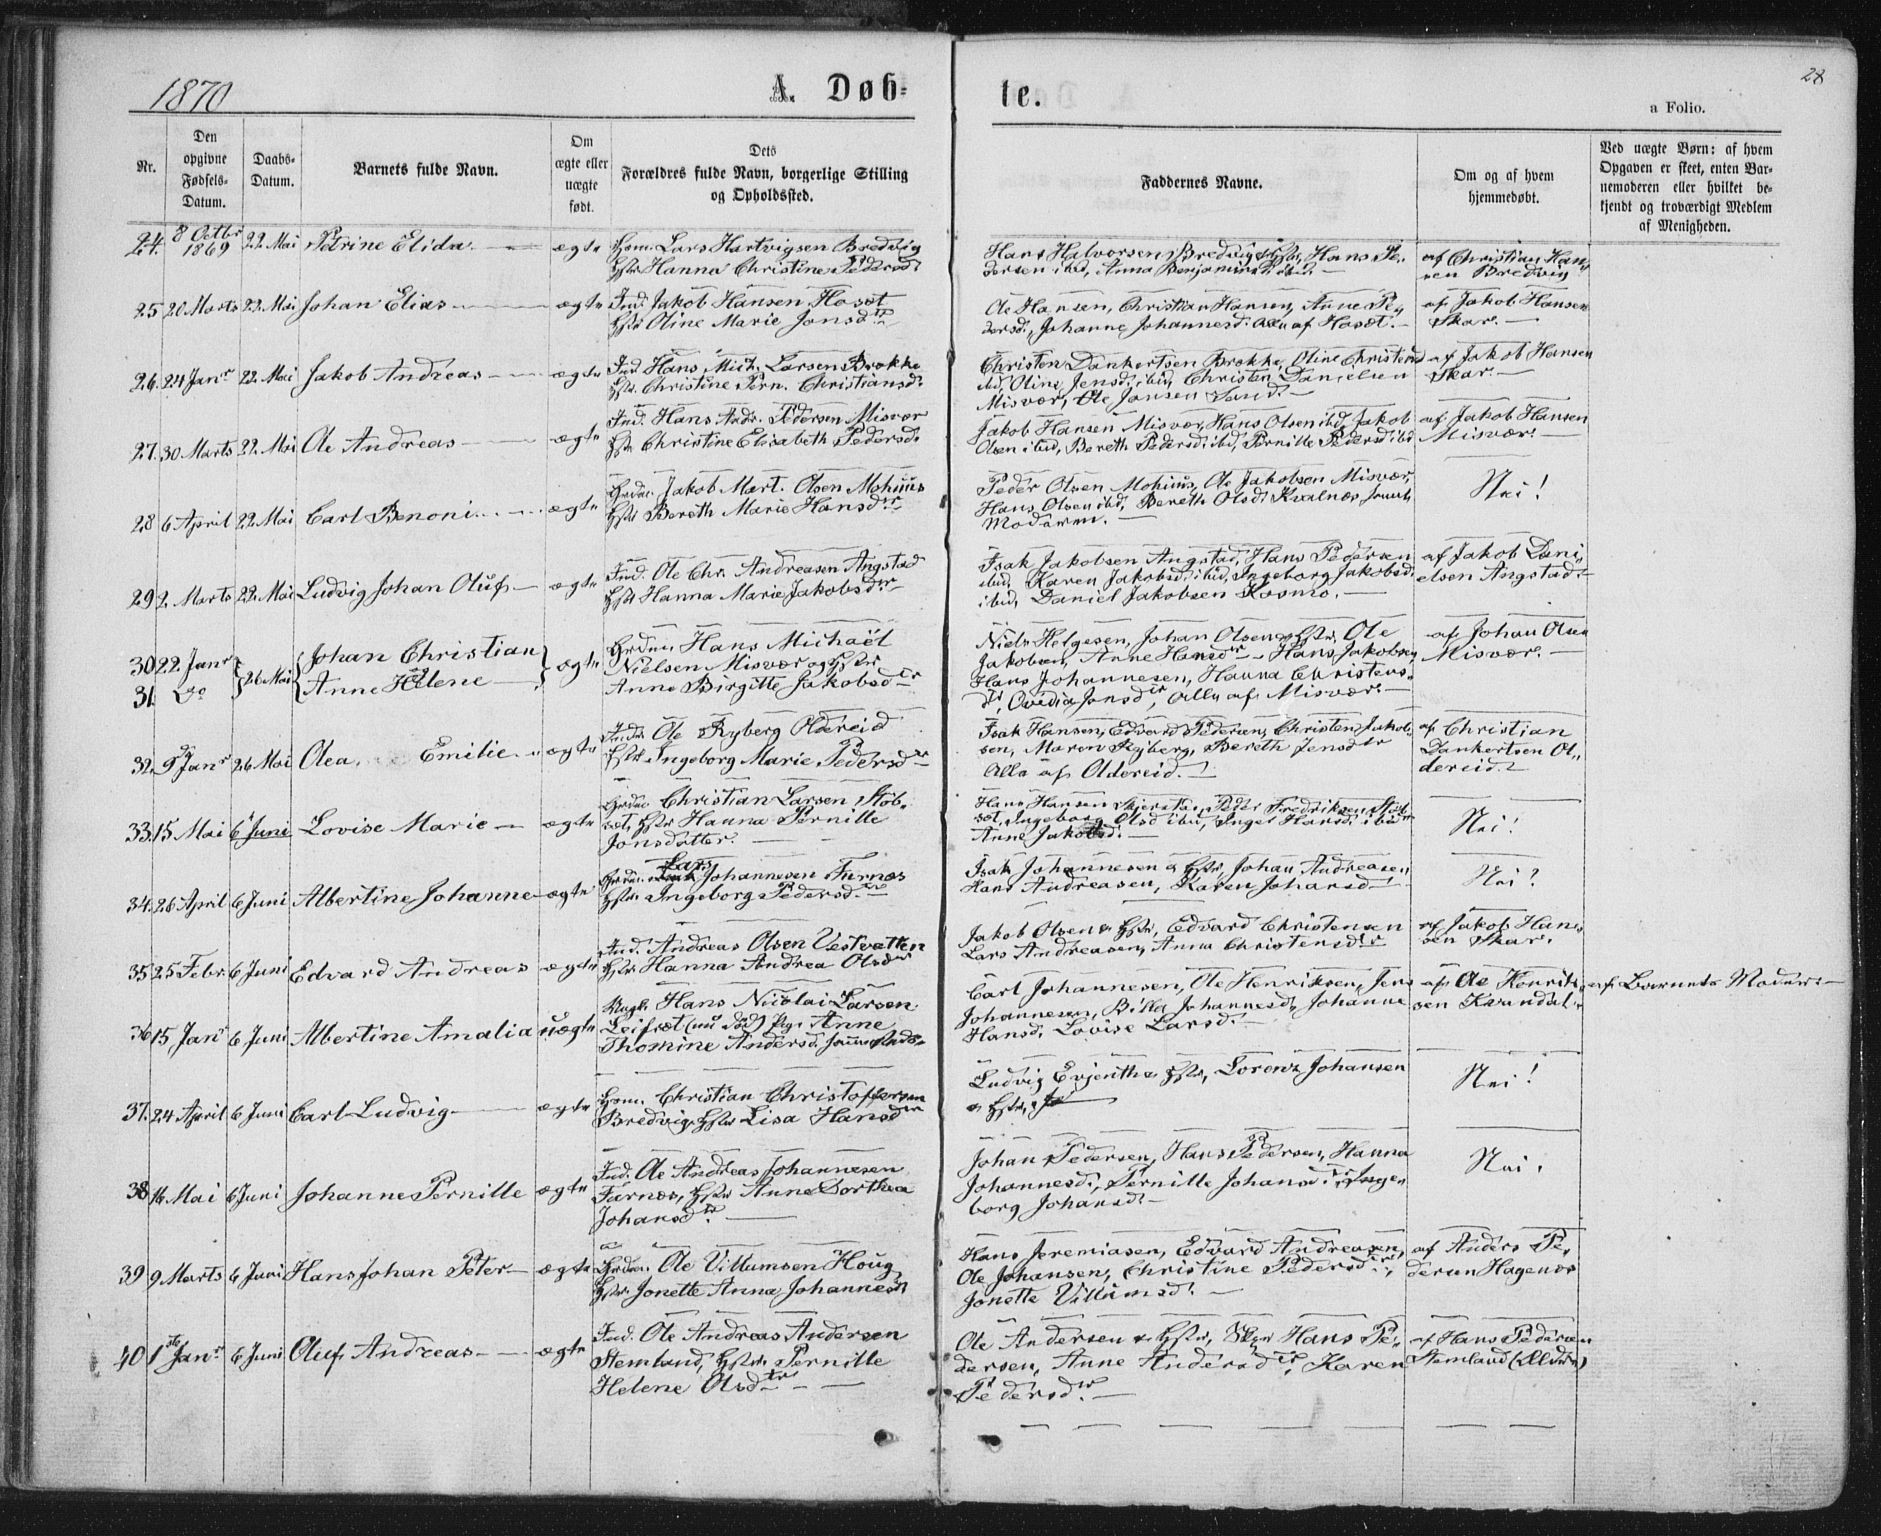 1870
A. Døb-
te.
28
a Folio.
Nr.
Den opgivne Fødsels-Datum.
Daabs-Datum.
Barnets fulde Navn.
Om ægte eller uægte født.
Dets Forældres fulde Navn, borgerlige Stilling og Opholdssted.
Faddernes Navne.
Om og af hvem hjemmedøbt.
Ved uægte Børn: af hvem Opgaven er skeet, enten Barnemoderen eller hvilket bekjendt og troværdigt Medlem af Menigheden.
24. 8 Octbr 1869 22 Mai Petrine Elida ægte
Hom. Lars Hartvigsen Bredvig
Hstr Hanna Christine Pedersd.
Hans Halvorsen Bredvig & Hstr, Hans Pe-
dersen ibid, Anna Benjamins ibid.
af Christian Han-
sen Bredvig
25 20 Marts 22 Mai Johan Elias ægte
Ind. Jakob Hansen Hoset
Hstr Oline Marie Jonsdtr
Ole Hansen, Christian Hansen, Anne Pe-
dersd., Johanne Johannesd. Alle af Hoset.
af Jakob Hansen
Skar.
26. 24 Janr 22 Mai Jakob Andreas ægte
Ind. Hans Mich. Larsen Brekke
Hstr. Christine Pern. Christiansd.
Christen Dankertsen Brekke, Oline Christensd
ibd, Oline Jensd. ibid, Christen Danielsen
Misvær, Ole Jonsen Sund.
af Jakob Hansen
Skar.
27. 30 Marts 22. Mai Ole Andreas ægte
Ind. Hans Andr. Pedersen Misvær
Hstr Christine Elisabeth Pedersd.
Jakob Hansen Misvær, Hans Olsen ibd, Jakob
Olsen ibid, Bereth Pedersd. ibid, Pernille Pedersd ibd
af Jakob Hansen
Misvær.
28 6 April 22 Mai Carl Benoni ægte
Grdm. Jakob Mart. Olsen Mohuus
Hstr Bereth Marie Hansdtr
Peder Olsen Mohuus, Ole Jakobsen Misvær,
Hans Olsen ibd, Bereth Olsd. Kvalnes samt
Moderen.
Nei!
29 2. Marts 22. Mai Ludvig Johan Oluf ægte
Ind. Ole Chr. Andreasen Angstad
Hstr Hanna Marie Jakobsdtr
Isak Jakobsen Angstad, Hans Pedersen
ibid, Karen Jakobsd. ibid, Ingeborg Jakobsd.
ibid, Daniel Jakobsen Kosmo.
af Jakob Dani-
elsen Angstad.
30 22. Janr 26 Mai Johan Christian ægte
31. do Anne Helene
Grdm. Hans Michaël
Nielsen Misvær og Hstr
Anne Birgitte Jakobsdtr
Niels Helgesen, Johan Olsen & Hstr, Ole
Jakobsen, Anne Hansdtr, Hans Jakobsen
Hans Johannesen, Hanna Christens-
dtr, Ovidia Jonsdtr, Alle af Misvær.
af Johan Olsen
Misvær.
32. 9de Janr 26 Mai Olea Emilie ægte
Inds. Ole Ryberg Oldereid
Hstr Ingeborg Marie Pedersdtr
Isak Hansen, Edvard Pedersen, Christen Jakob-
sen, Maren Ryberg, Bereth Jensdtr
Alle af Oldereid.
af Christian
Dankertsen Ol-
dereid.
33. 15 Mai 6 Juni Lovise Marie ægte
Grdm. Christian Larsen Støb-
set, Hstr Hanna Pernille
Jonsdatter.
Hans Hansen Skjerstad, Peder Fredriksen Støb-
set, Ingeborg Olsd ibid, Inger Hansd. ibid
Anne Jakobsd.
Nei!
34. 26 April 6 Juni Albertine Johanne ægte
Grdm. Lars Johannesen Furnes
Hstr. Ingeborg Pedersd.
Isak Johannesen & Hstr, Johan Andreasen
Hans Andreasen, Karen Johansd.
Nei!
35 25 Febr. 6 Juni Edvard Andreas ægte
Ind. Andreas Olsen Vestvatten
Hstr Hanna Andrea Olsdtr
Jakob Olsen & Hstr, Edvard Christensen
Lars Andreasen, Anna Christensdtr
af Jakob Han-
sen Skar.
36 15 Janr 6 Juni Albertine Amalia uægte
Ungk. Hans Nicolai Larsen
Leifset (nu død) Pige Anne
Thomine Andersd.
Carl Johannesen, Ole Henriksen, Jens
Johannesen, Billa Johannesd., Johanne
Hansd. Lovise Larsd.
af Ole Henrik-
sen Kvandal.
af Barnets Moder.
37. 24 April 6 Juni Carl Ludvig ægte
Hom. Christian Christoffersen
Bredvig, Hstr Lisa Hansdtr
Ludvig Evjenth & Hstr, Lorenz Johansen
& Hstr,
Nei!
38 16 Mai 6 Juni Johanne Pernille ægte
Ind. Ole Andreas Johannesen
Furnes, Hstr Anne Dorthea
Johansdtr.
Johan Pedersen, Hans Pedersen, Hanna
Johannesd., Pernille Johansdtr, Inge-
borg Johansd.
Nei.
39 9 Marts 6 Juni Hans Johan Peter ægte
Grdm. Ole Villumsen Houg,
Hstr. Jonette Anna Johannesd.
Hans Jeremiasen, Edvard Andreasen,
Ole Johansen, Christine Pedersdtr,
Jonette Villumsd.
af Anders Pe-
dersen Hagenæs
40 1ste Janr 6 Juni Oluf Andreas ægte
Ind. Ole Andreas Andersen
Stemland, Hstr. Pernille
Helene Olsdtr
Ole Andersen & Hstr, Hans Pe-
dersen, Anne Andersdtr, Karen
Pedersdtr
af Hans Pedersen
Stemland (Ældre)